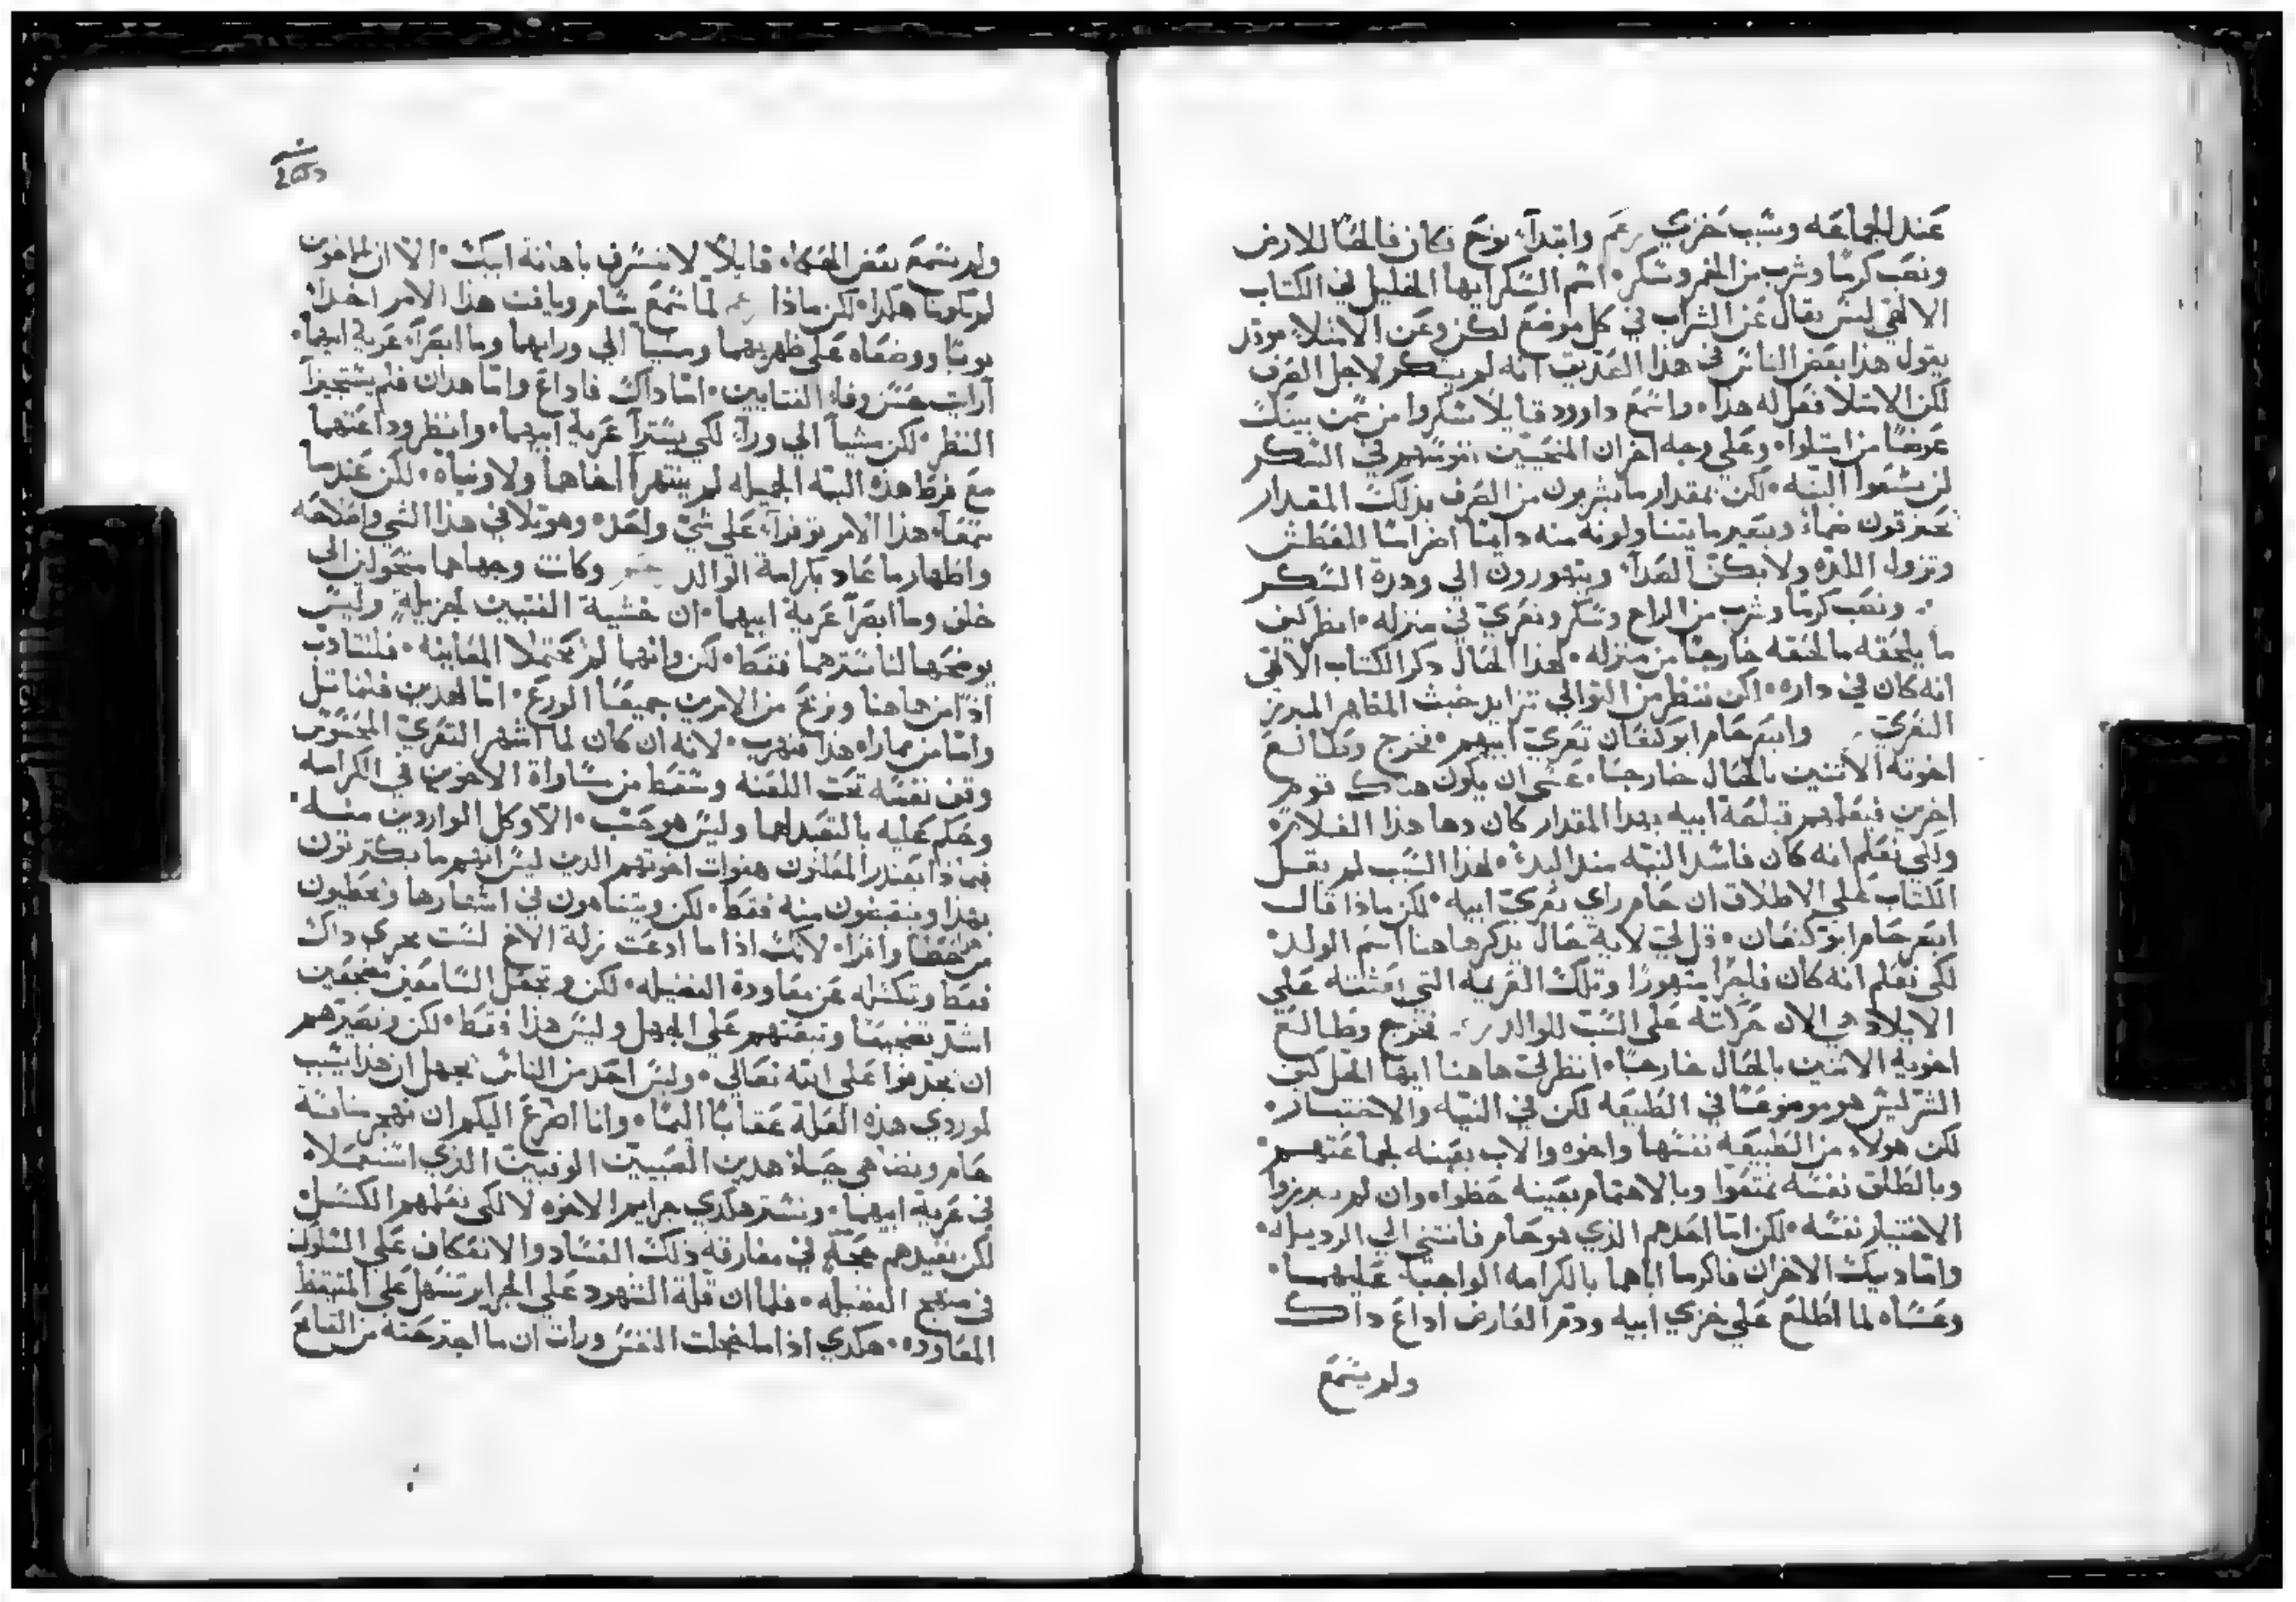 عند الجماعه وسبب خزي وابتدا نوح فكان فالحًا للارض
ونصب كرمًا وشرب من الخمر وسكر اسم السكر ايها الخليل في الكتاب
الالهي ليس يقال عن الشراب في كل موضع لكن وعن الامتلا
يقول هذا بعض الناس في هذا الصديق انه لم يسكر لاجل الصرف
لكن الامتلا فعل له هذا واسمع داوود قايلًا سكروا من بيتك
عوضًا من امتلوا وعلي وجه اخر ان في السكر
لن يشبعوا البته لكن بمقدار ما يشربون من الصرف بذلك المقدار
يحترقون ضماء ويصير ما يتناولونه منه دايمًا للعطش
وتزول اللذه ولا الصدآ ويتهورون الي وهدة السكر
ونصب كرمًا وشرب من الراح وسكر وتعري في منزله انظر كيف
ما يلحقه ما لحقه خارجًا من منزله لهذا الحال ذكر الكتاب الالهي
انه كان في داره لكن ننظر من التوالي تزايد خبث المظاهر المبرز
التعري وابصر حام ابو كنعان تعري ابيهم فخرج وطالع
اخوته الاثنين بالحال خارجًا عسي ان يكون هناك قوم
اخرين فيعلمهم قباحة ابيه بهذا المقدار كان دها هذا الغلام
ولكي نعلم انه كان فاسد النيه منذ البدء لهذا السبب لم يقل
الكتاب علي الاطلاق ان حام راي تعري ابيه لكن ماذا قال
ابصر حام ابو كنعان قل لي لاية حال يذكر هاهنا اسم الولد
لكي نعلم انه كان متهورًا وتلك العربه التي علي
الايلاد هي الان جراته علي السب للوالد فخرج وطالع
اخويه الاثنين بالحال خارجًا انظر لي هاهنا ايها الخل كيف
الشر ليس هو موضوعًا في الطبيعه لكن في النيه والاختيار
لكن هولاء من الطبيعه نفسها واخوه والاب بعينه لجماعتهم
وبالطلق نفسه تمتعوا وبالاهتمام بعينه حظوا وان لم يبرزوا
الاختيار نفسه لكن اما احدهم الذي هو حام فانتني الي الرديله
واما ذينك الاخران فاكرما اباهما بالكرامه الواجبة عليهما
وعساه لما اطلع علي خزي ابيه اذاع ذاك
ولم يسمع
ولم يسمع بعض الحكماء قايلًا لا تتشرف باهانة ابيك الا ان الاخوين
لم يكونا هكذا لكن ماذا لما سمع سام ويافت هذا الامر اخذا
ثوبًا ووضعاه علي ظهريهما ومشيا الي ورايهما وما ابصرآ عرية ابيهما
ارايت حسن وفاء الفتايين اما ذاك فاذاع واما هذان فلم يستجيزا
النظر لكن مشيآ الي ورآ لكي يسترآ عرية ابيهما وانظر وداعتهما
مع فرط هذه النيه الجميله لم ينتهرآ اخاهما ولا وبخاه لكن عندما
سمعا هذا الامر توفرا علي شي واحد وهو تلافي هذا الشي واصلاحه
واظهار ما عاد بكرامة الوالد وكانت وجهاهما متحولين الي
خلف وما ابصرآ عرية ابيهما ان خشية الفتيين لجزيلةٍ وليس
يوضحها لنا سترهما فقط لكن وانهما لم يحتملا المعاينه فلنتادب
اذًا من هاهنا ونربح من الامرين جميعًا الورع اما لهذين فلنماثل
واما من مماراه هذا فنهرب لانه ان كان لما اشهر التعري المحسوس
وقف نفسه تحت اللعنه وسقط من مساواة الاخوين في الكرامه
وحكم عليه بالتعبد لهما وليس هو حسب الا وكل الواردين منه
فبماذا يعتذر المعلنون هفوات اخوتهم الذين ليس انهم ما يكترثون
بهذا ويتبعون منه فقط لكن ويتناهون في اشهارها ويحطيون
وافرا لانك اذا ما اذعت زلة الاخ لست تعري ذاك
فقط وتكسله عن معاودة الفضيله لكن وتجعل السامعين مضجعين
اشد تضجيعًا وتبعتهم علي الجهل وليس هذا فقط لكن وتصيرهم
ان يجدفوا علي الله تعالي وليس احد من الناس يجهل ان هذا يسبب
لموردي هذه العلة عقابًا اليمًا وانا اضرع اليكم ان نهجر منافسة
حام ونضاهي حياء هذين الصبيين الوفيين الذي استعملا
في عرية ابيهما ونستر هكذي جرايم الاخوه لا لكي نعلمهم الكسل
لكن نفيدهم حجة في مفارقة ذلك الفساد والانعكاف علي السلوك
في منهج الفضيله فلما ان قلة الشهود علي الجراير تسهل علي المتيقظ
المعاوده هكذي اذا ما خجلت النفس ورات ان ما اجترحته من القبايح